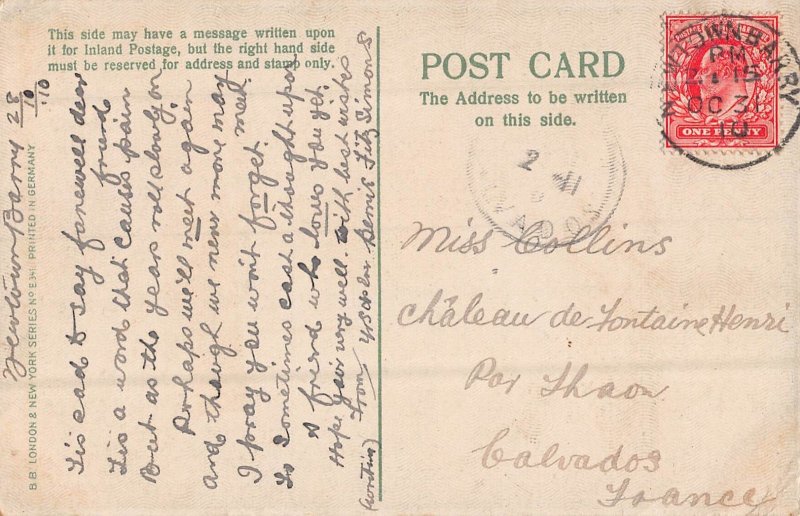 This side may have a message written upon
it for Inland Postage, but the right hand side
must be reserved for address and stamp only.
Newtown Barry 28
10
'10
Tis sad to say farewell dear
friend
Tis a word that causes pain
But as the years roll slowly on
Perhaps we'll meet again
And though we never more may
meet.
I pray you won't forget.
To sometimes cast a thought upon
A friend who loves you yet.
Hope your very well. with best wishes
From
Bernie Fitz Simons
(writing)
B.B. LONDON & NEW YORK SERIES No E341 PRINTED IN GERMANY
POST CARD
The Address to be written
on this side.
NEWTOWNBARRY
PM
7 15
OC 31
10
ONE PENNY
2
11
CALVADOS
Miss Collins
Château de Fontaine Henri
Par Thaon
Calvados
France